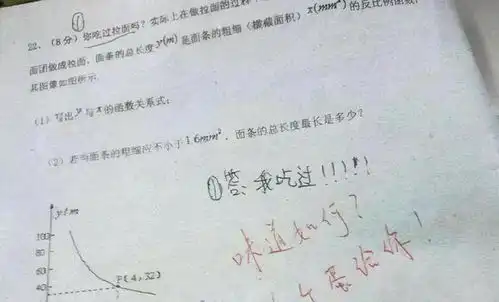 ①
22. (8分) 你吃过拉面吗?实际上在做拉面的过
面团做成拉面,面条的总长度y(m)是面条的粗细(横截面积)x(mm²)的反比例函数
其图像如图所示
(1) 写出y与x的函数关系式;
(2) 若当面条的粗细应不小于1.6mm²,面条的总长度最长是多少?
①答:我吃过!!!!!
味道如何?
y/m
100
80
60
40
P(4,32)
基给你!